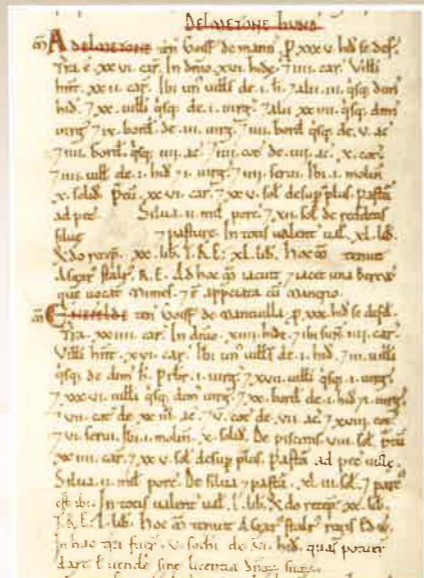 DELMETONE HUND
m̄ ADELMETONE ten̄ Goisf̄ de mann̄. ꝑ xxxv. hid̄ se def̄.
Tr̄a .ē. xxvi. car̄. In dn̄io. xvi. hidę. ⁊ .iiii. car̄. Villi
hn̄t. xxii. car̄. Ibi un̄ uills̄ de .i. h̄. ⁊ alii .iii. q̄sq; dim̄
hid̄. ⁊ xx. uilli q̄sq; de .i. uirḡ. ⁊ alii xxiiii. q̄sq; dim̄
uirḡ. ⁊ ix. bord̄. de .iii. uirḡ. ⁊ .iiii. bord̄ q̄sq; de .v. ac̄
⁊ .iiii. bord̄. q̄sq; .iiii. ac̄. ⁊ .iiii. cot̄ de .iiii. ac̄. .x. cot̄.
⁊ .iiii. uill̄ de .i. hid̄ ⁊ .i. uirḡ. ⁊ .iiii. serui. Ibi .i. molin̄
x. solid̄. p̄tū xxvi. car̄. ⁊ xxv. sol̄ desup̄ plus. Pasta
ad pec̄. Silua .ii. mil̄ porc̄. ⁊ xii. sol̄ de reddit̄
siluę ⁊ pasturę. In totis ualent̄ ual̄. xl. lib̄.
Q̄do recep̄. xx. lib̄. T.R.E. xl. lib̄. Hoc m̄ tenuit
Asgar stalr̄. R.E. Ad hoc m̄ iacuit ⁊ iacet una bereu
que uocat̄ Mimes. ⁊ .ē. app̄ciata cū manerio.
m̄ ENEFELDE ten̄ Goisf̄ de Mandauilla. ꝑ xxx. hid̄ se defd̄.
Tr̄a. xxiiii. car̄. In dn̄io. xiiii. hidę. ⁊ ibi sunt .iiii. car̄.
Villi hn̄t. xvi. car̄. Ibi un̄ uills̄ de .i. hid̄. ⁊ .iii. uilli
q̄sq; de dim̄ h̄. Pr̄br̄ .i. uirḡ. ⁊ xvii. uilli q̄sq; .i. uirḡ.
⁊ xxxvi. uilli q̄sq; dim̄ uirḡ. ⁊ xx. bord̄ de .i. hid̄ ⁊ .i. uirḡ.
⁊ vii. cot̄ de xxiii. ac̄. ⁊ v. cot̄ de vii. ac̄. ⁊ xviii. cot̄.
⁊ vi. serui. Ibi .i. molin̄. x. solid̄. De piscinis. viii. sol̄. p̄tū
xxiiii. car̄. ⁊ xxv. sol̄ desup̄ plus. Pasta ad pec̄ uillę
Silua .ii. mil̄ porc̄. De silua ⁊ pasta. xliii. sol̄. ⁊ parc̄
est ibi. In totis ualent̄ ual̄. l. lib̄. Q̄do recep̄. xx. lib̄.
T.R.E. l. lib̄. Hoc m̄ tenuit Asgar stalr̄ regis E.
In hac tr̄a fuer̄. v. sochi de vi. hid̄. quas potuer̄
dare ł uendē sine licentia dn̄oȝ suoȝ.